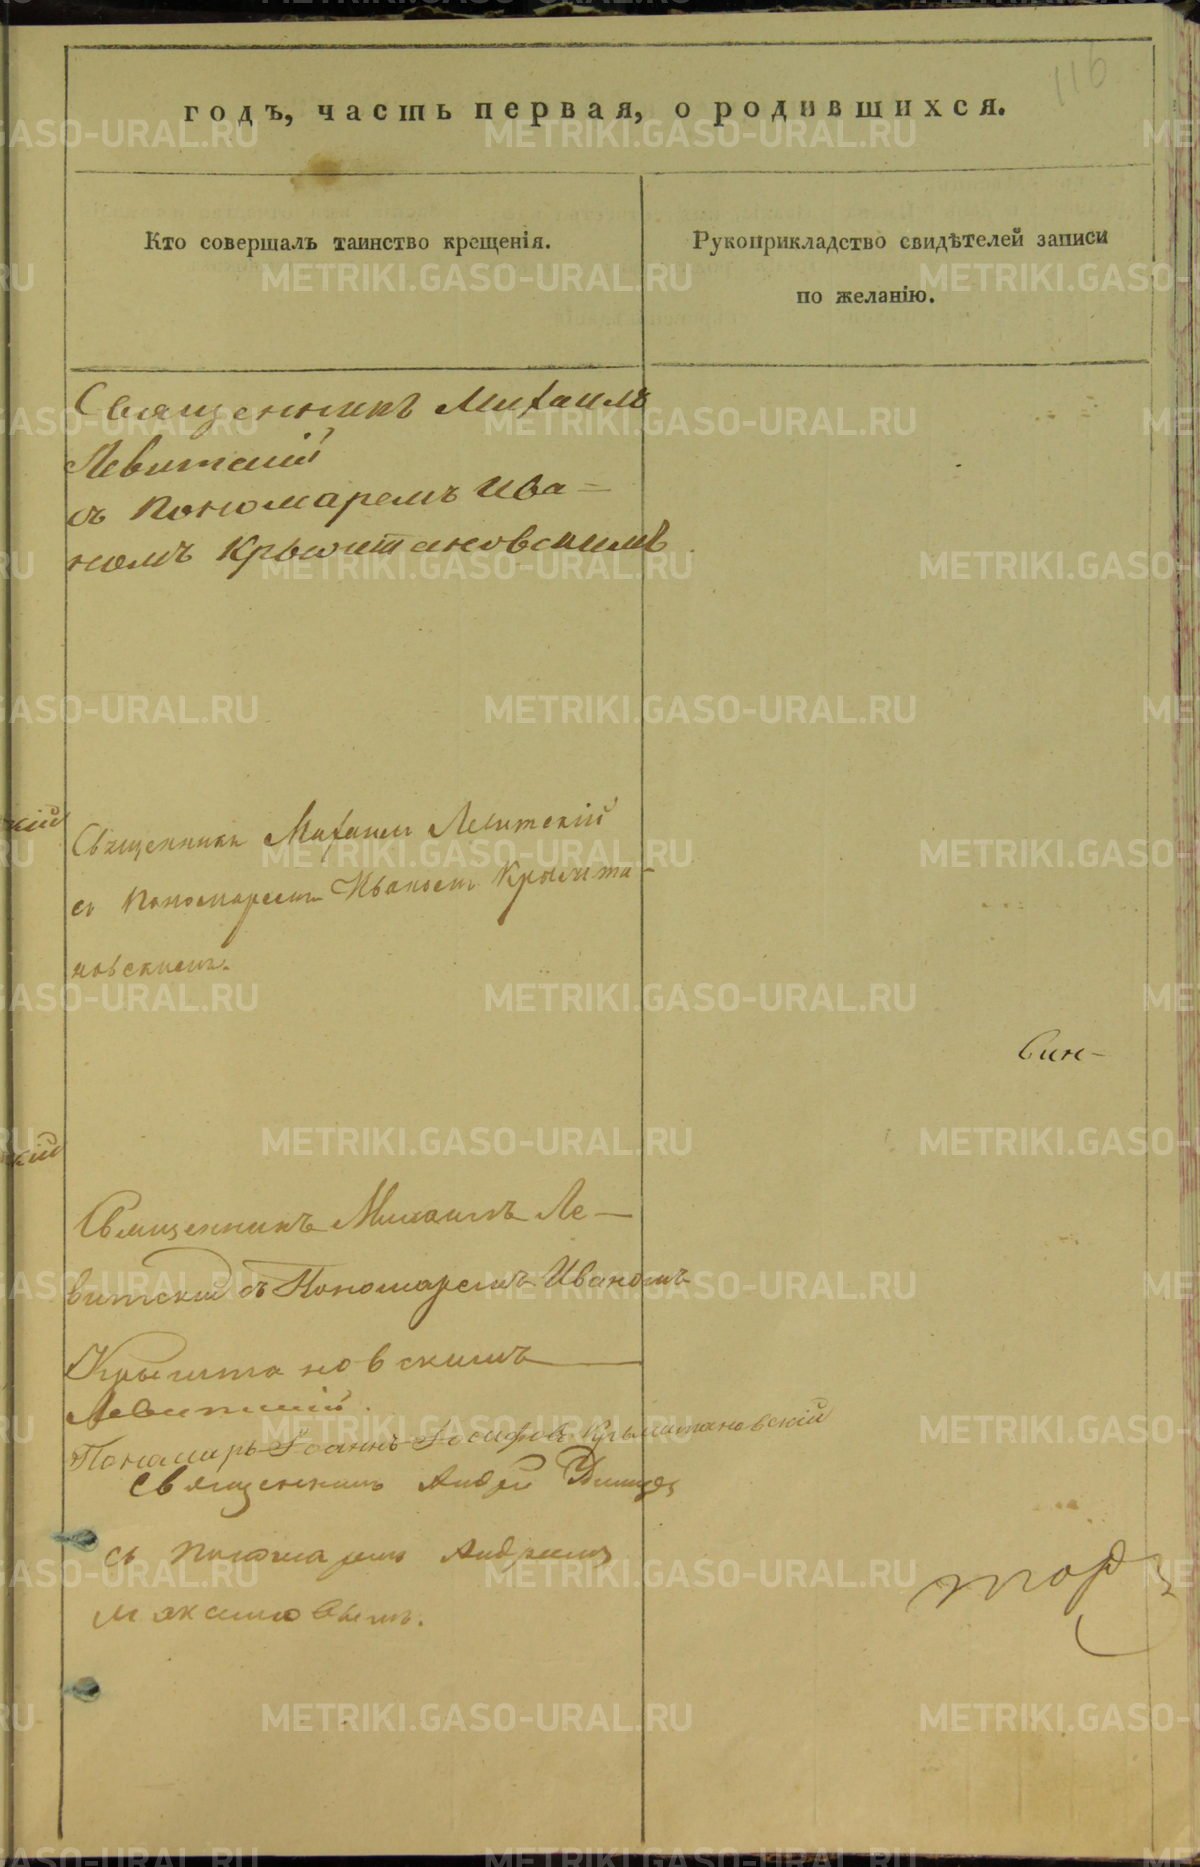 116
годъ, часть первая, о родившихся.
Кто совершалъ таинство крещенія.
Рукоприкладство свидѣтелей записи
по желанію.
Священникъ Михаилъ
Левитскій
съ Пономаремъ Ива-
номъ Крыжтановскимъ
кій
Священникъ Михаилъ Левитскій
съ Пономаремъ Иваномъ Крыжта-
новскимъ.
Син-
кій
Священникъ Михаилъ Ле-
витскій съ Пономаремъ Иваномъ
Крыжтановскимъ
Левитскій.
Пономарь Іоаннъ Іосифовъ Крыжтановскій
Священникъ Андрей
съ Пономаремъ Андреемъ
Максимовымъ.
METRIKI.GASO-URAL.RU